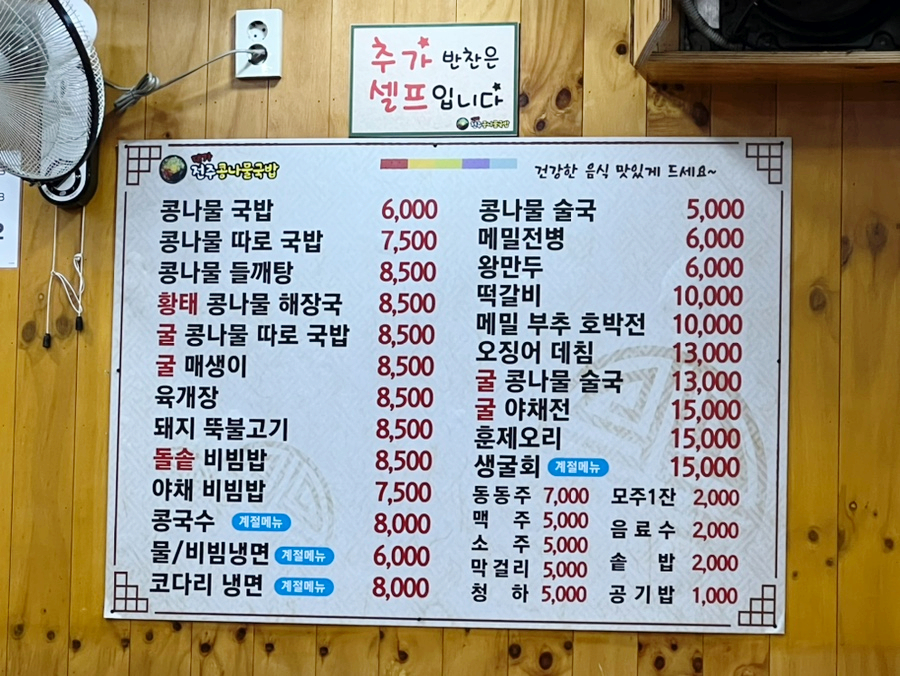 추가 반찬은
셀프입니다
전주콩나물국밥
전주콩나물국밥
건강한 음식 맛있게 드세요~
콩나물 국밥 6,000
콩나물 따로 국밥 7,500
콩나물 들깨탕 8,500
황태 콩나물 해장국 8,500
굴 콩나물 따로 국밥 8,500
굴 매생이 8,500
육개장 8,500
돼지 뚝불고기 8,500
돌솥 비빔밥 8,500
야채 비빔밥 7,500
콩국수 계절메뉴 8,000
물/비빔냉면 계절메뉴 6,000
코다리 냉면 계절메뉴 8,000
콩나물 술국 5,000
메밀전병 6,000
왕만두 6,000
떡갈비 10,000
메밀 부추 호박전 10,000
오징어 데침 13,000
굴 콩나물 술국 13,000
굴 야채전 15,000
훈제오리 15,000
생굴회 계절메뉴 15,000
동동주 7,000
맥 주 5,000
소 주 5,000
막걸리 5,000
청 하 5,000
모주1잔 2,000
음료수 2,000
솥 밥 2,000
공기밥 1,000